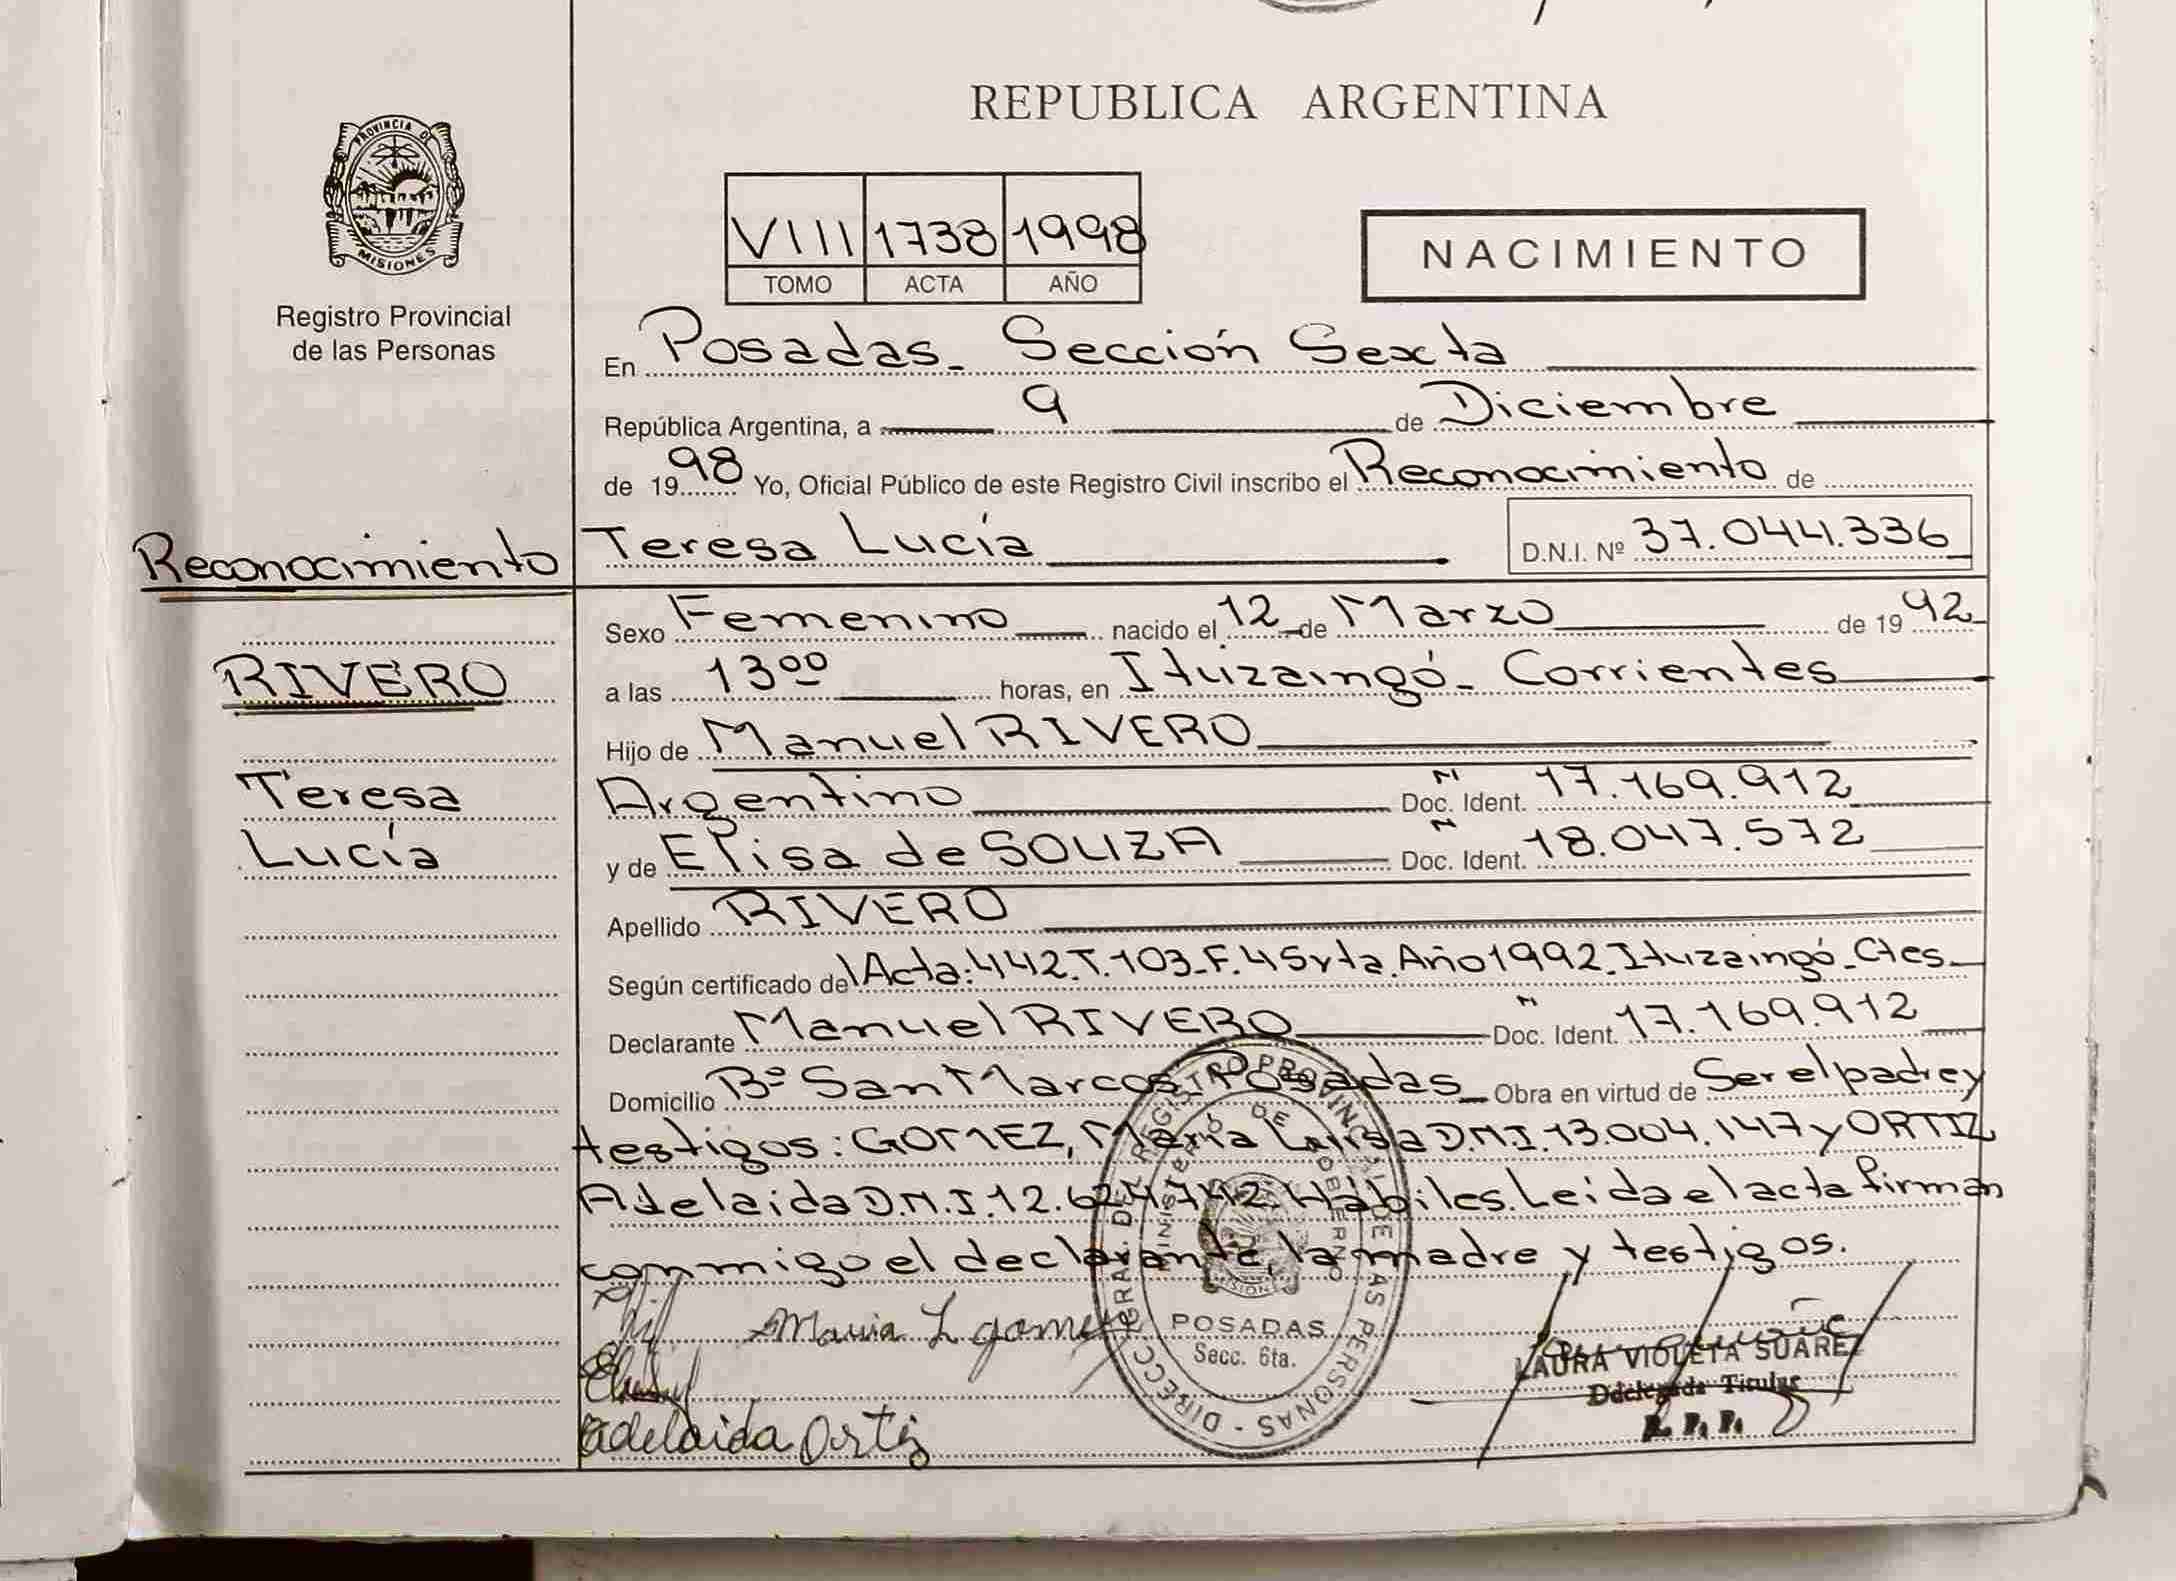 REPUBLICA ARGENTINA
PROVINCIA DE
MISIONES
Registro Provincial
de las Personas
VIII 1738 1998
TOMO ACTA AÑO
NACIMIENTO
En Posadas_ Sección Sexta
República Argentina, a 9 de Diciembre
de 1998 Yo, Oficial Público de este Registro Civil inscribo el Reconocimiento de
Reconocimiento
Teresa Lucía D.N.I. Nº 37.044.336
Sexo Femenino nacido el 12 de Marzo de 1992
RIVERO
a las 13ºº horas, en Ituzaingó_ Corrientes
Hijo de Manuel RIVERO
Teresa
Argentino Doc. Ident. N 17.169.912
Lucía
y de Elisa de SOUZA Doc. Ident. N 18.047.572
Apellido RIVERO
Según certificado del Acta: 442_T.103_F.45vta. Año 1992_Ituzaingó_Ctes_
Declarante Manuel RIVERO Doc. Ident. N 17.169.912
Domicilio Bº San Marcos Posadas_ Obra en virtud de Ser el padre y
testigos: GOMEZ, María Luisa D.N.I. 13.004.147 y ORTIZ
Adelaida D.N.I. 12.624.742 Hábiles. Leida el acta firman
conmigo el declarante, la madre y testigos.
Maria L gomez
Adelaida Ortiz
DIRECC. GRAL. DEL REGISTRO PROVINCIAL DE LAS PERSONAS -
MINISTERIO DE GOBIERNO
MISIONES
POSADAS
Secc. 6ta.
LAURA VIOLETA SUAREZ
Delegada Titular
R. P. P.